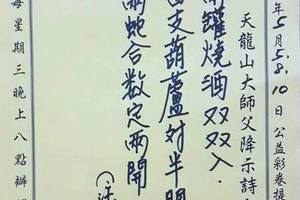 年5月5.8.10日公益彩卷提
天龍山大師父降示詩
罐燒酒双双入.
支葫蘆对半開
兩蛇合数定兩開
每星期三晚上八點辦